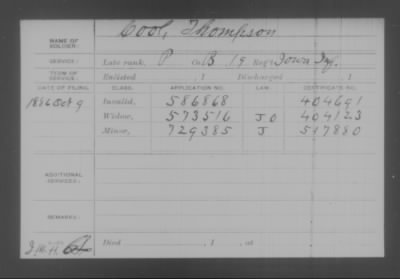 NAME OF SOLDIER: Cool, Thompson
SERVICE: Late rank, P Co. B, 19 Reg't Iowa Inf.
TERM OF SERVICE: Enlisted , 1 Discharged , 1
DATE OF FILING. CLASS. APPLICATION NO. LAW. CERTIFICATE NO.
1886 Oct 9 Invalid, 586868 404691
Widow, 573516 J O 404123
Minor, 729385 J 517880
ADDITIONAL SERVICES:
REMARKS:
Died , 1 , at